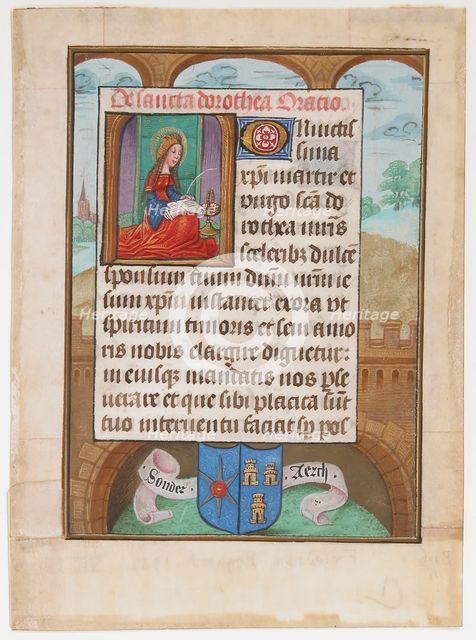 De sancta dorothea Oratio
Inuictis
sima
xpi martir et
uirgo sca do
rothea uiris
sceleribz dulcē
sponsum tuum dnm nrm ie
sum xpm instanter exora vt
spiritum timoris et sem amo
ris nobis elargire dignetur:
in eiusq mandatis nos pse
uerare et que sibi placita sūt
tuo interuentu faciat sp pos
Sonder
Aerch